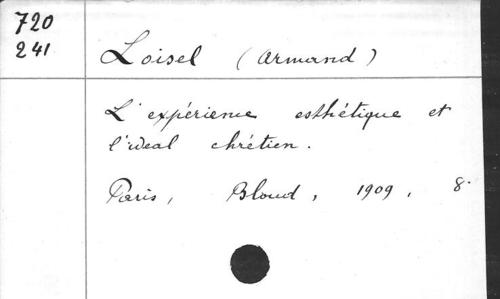 720
241
Loisel (Armand)
L'expérience esthétique et
l'ideal chrétien.
Paris, Bloud, 1909, 8.